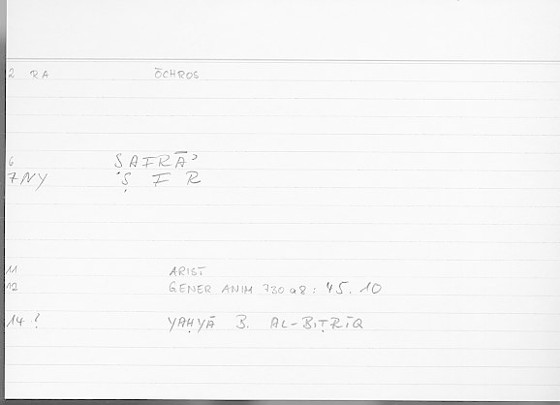 2 RA ŌCHROS
6 ṢAFRĀʾ
7NY Ṣ F R
11 ARIST
12 GENER ANIM 730a8: 45.10
14 ? YAḤYĀ B. AL-BIṬRĪQ